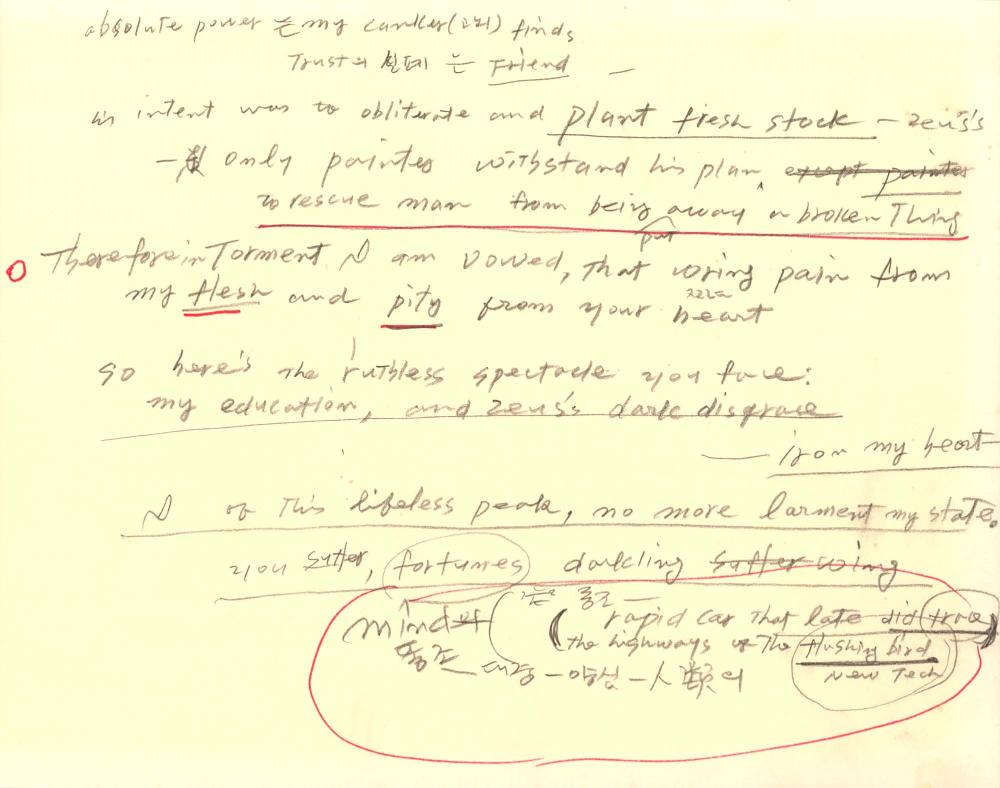 absolute power 는 my canker(고뇌) finds
Trust의 실패 는 Friend —
his intent was to obliterate and plant fresh stock — zeus's
— only painter withstand his plan, except painter
to rescue man from being away a broken Thing
put
Therefore in Torment I am vowed, that wring pain from
my flesh and pity from your heart
so here's the ruthless spectacle you face:
my education, and zeus's dark disgrace
— iron my heart
I of this lifeless peak, no more larment my state.
you suffer, fortunes darkling suffer wing
mind의 ( rapid car that late did trace )
동조 the highways of The flushing bird
대중 — 양심 — 人類의 New Tech